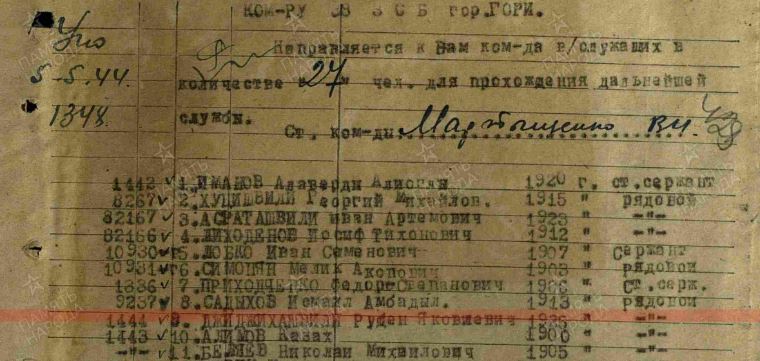 КОМ-РУ 38 З С Б гор.ГОРИ.
Направляется к Вам ком-да в/служащих в
5-5.44. количестве "27" чел. для прохождения дальнейшей
1348 службы.
Ст. ком-ды: Мартыщенко В.И.
1442 1.ИМАНОВ Алаверды 1920 г. ст.сержант
8267 2.ХУЦИШВИЛИ Георгий Михайлов. 1915 " рядовой
82167 3.АСРАТАШВИЛИ Иван Артемович 1923 " -"-
82166 4.ЛИХОДЕНОВ Иосыф Тихонович 1912 " -"-
10930 5.ЛОБКО Иван Семенович 1907 " Сержант
10931 6.СИМОНЯН Мелик Акопович 1903 " рядовой
1336 7.ПРИХОДЧЕНКО Федор Степанович " Ст.серж.
9237 8.САДЫХОВ Исмаил 1913 " рядовой
1444 9.ДЖИДЖИХАШВИЛИ Рубен Яковлевич " -"-
1443 10.АЛИМОВ Казах 1900 " -"-
-"- 11. Николай Михайлович 1905 " -"-